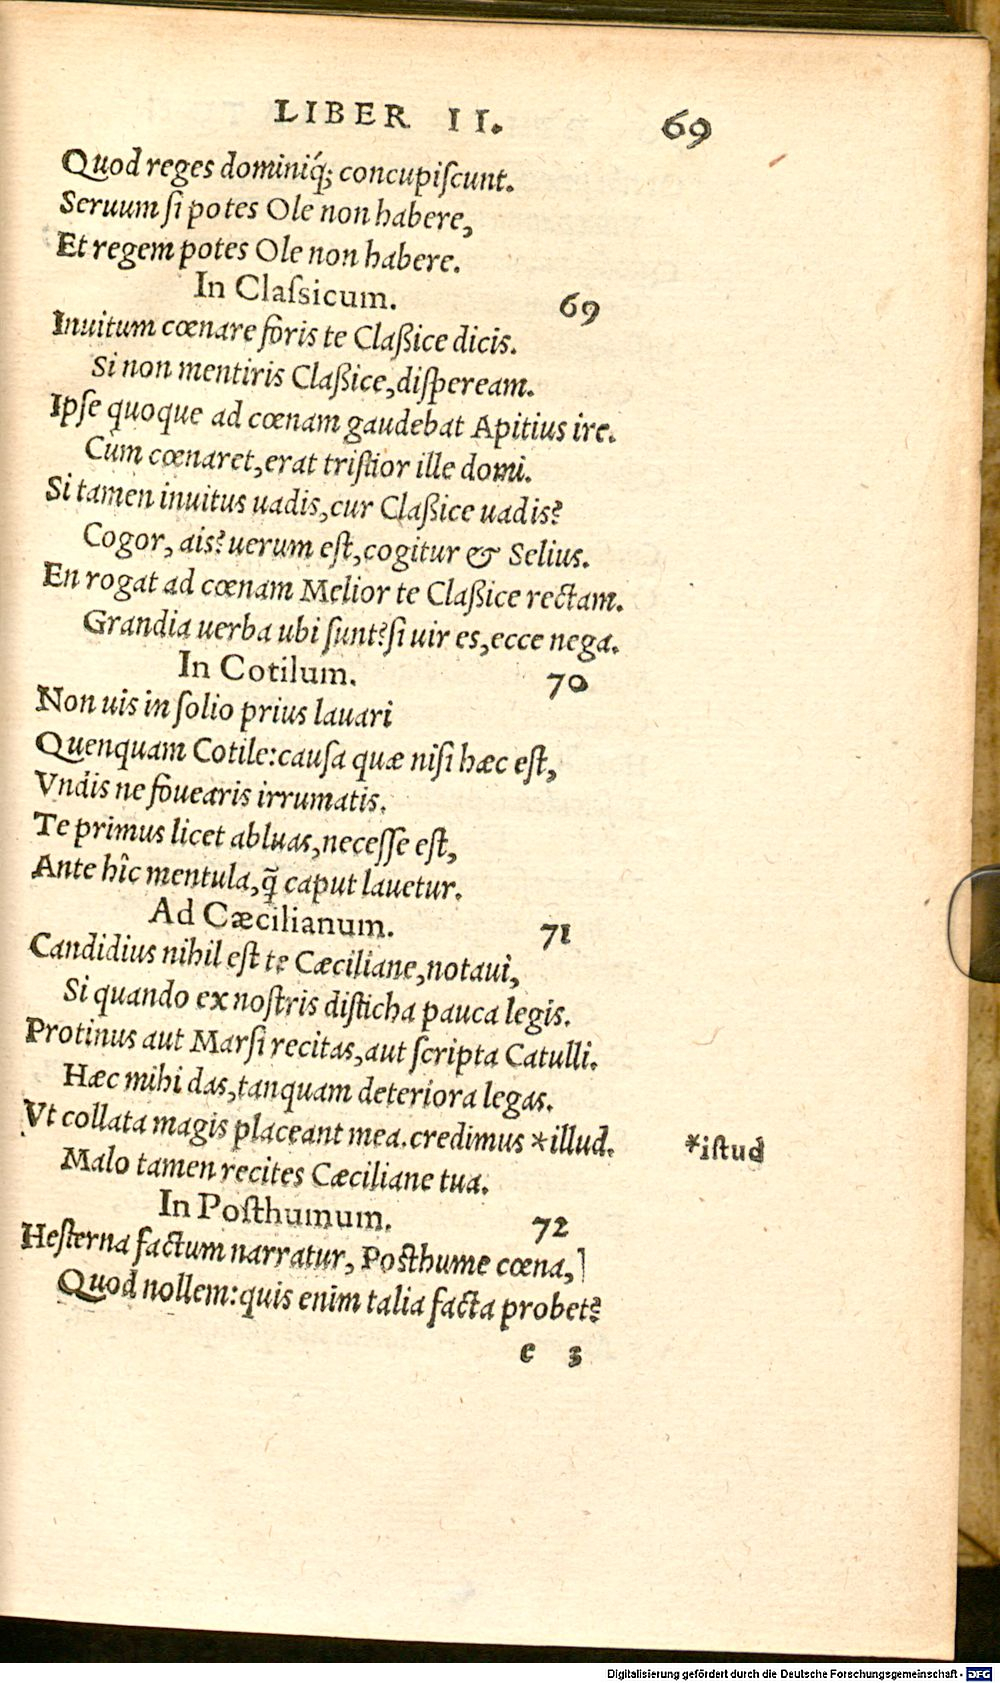 LIBER II. 69
Quod reges dominiq́; concupiſcunt.
Seruum ſi potes Ole non habere,
Et regem potes Ole non habere.
In Claſsicum. 69
Inuitum cœnare foris te Claßice dicis.
Si non mentiris Claßice, diſpeream.
Ipſe quoque ad cœnam gaudebat Apitius ire.
Cùm cœnaret, erat triſtior ille domi.
Si tamen inuitus uadis, cur Claßice uadis?
Cogor, ais? uerum eſt, cogitur & Selius.
En rogat ad cœnam Melior te Claßice rectam.
Grandia uerba ubi ſunt? ſi uir es, ecce nega.
In Cotilum. 70
Non uis in ſolio prius lauari
Quenquam Cotile: cauſa quæ niſi hæc eſt,
Vndis ne fouearis irrumatis.
Te primus licet abluas, neceſſe eſt,
Ante hîc mentula, q̃ caput lauetur.
Ad Cæcilianum. 71
Candidius nihil eſt te Cæciliane, notaui,
Si quando ex noſtris diſticha pauca legis.
Protinus aut Marſi recitas, aut ſcripta Catulli.
Hæc mihi das, tanquam deteriora legas.
Vt collata magis placeant mea. credimus *illud. *iſtud
Malo tamen recites Cæciliane tua.
In Poſthumum. 72
Heſterna factum narratur, Poſthume cœna,
Quod nollem: quis enim talia facta probet?
e 3
Digitalisierung gefördert durch die Deutsche Forschungsgemeinschaft - DFG